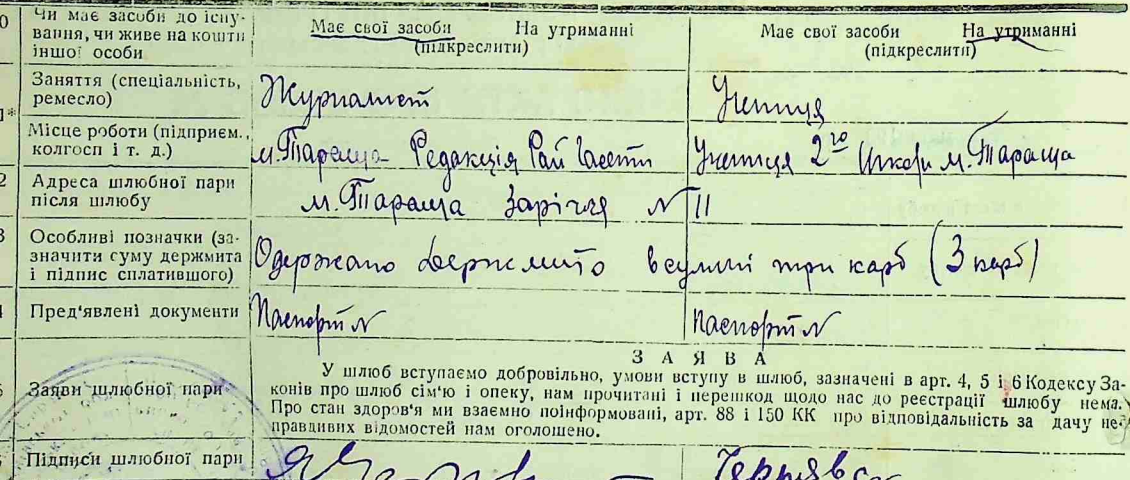 0 Чи має засоби до існу-
вання, чи живе на кошти
іншої особи
Має свої засоби На утриманні
(підкреслити)
Має свої засоби На утриманні
(підкреслити)
1* Заняття (спеціальність,
ремесло)
Журналист
Учениця
Місце роботи (підприєм.,
колгосп і т. д.)
м. Тараща Редакція Рай Газети
Учениця 2го Шкори м. Тараща
2 Адреса шлюбної пари
після шлюбу
м. Тараща Зарічя № 11
3 Особливі позначки (за-
значити суму держмита
і підпис сплатившого)
Одержано держмито в сумми три карб (3 карб)
4 Пред'явлені документи
Паспорт №
Паспорт №
5 Заяви шлюбної пари
ЗАЯВА
У шлюб вступаємо добровільно, умови вступу в шлюб, зазначені в арт. 4, 5 і 6 Кодексу За-
конів про шлюб сім'ю і опеку, нам прочитані і перешкод щодо нас до реєстрації шлюбу нема.
Про стан здоров'я ми взаємно поінформовані, арт. 88 і 150 КК про відповідальність за дачу не-
правдивих відомостей нам оголошено.
Підписи шлюбної пари